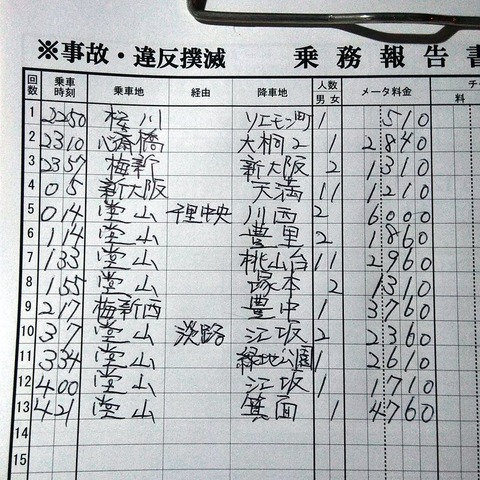 ※事故・違反撲滅 乗務報告書
回数 乗車時刻 乗車地 経由 降車地 人数 男 女 メータ料金 チ 料
1 2250 桜川 リエモン町 1 510
2 2310 心斎橋 大桐2 1 2840
3 2357 梅新 新大阪 2 1310
4 05 新大阪 天満 1 1 1210
5 014 堂山 千里中央 川西 2 6000
6 114 堂山 豊里 2 1860
7 133 堂山 桃山台 1 1 2960
8 155 堂山 塚本 2 1310
9 217 梅新西 豊中 1 3760
10 37 堂山 淡路 江坂 2 2360
11 334 堂山 緑地公園 1 2610
12 400 堂山 江坂 1 1710
13 421 堂山 箕面 1 4760
14
15